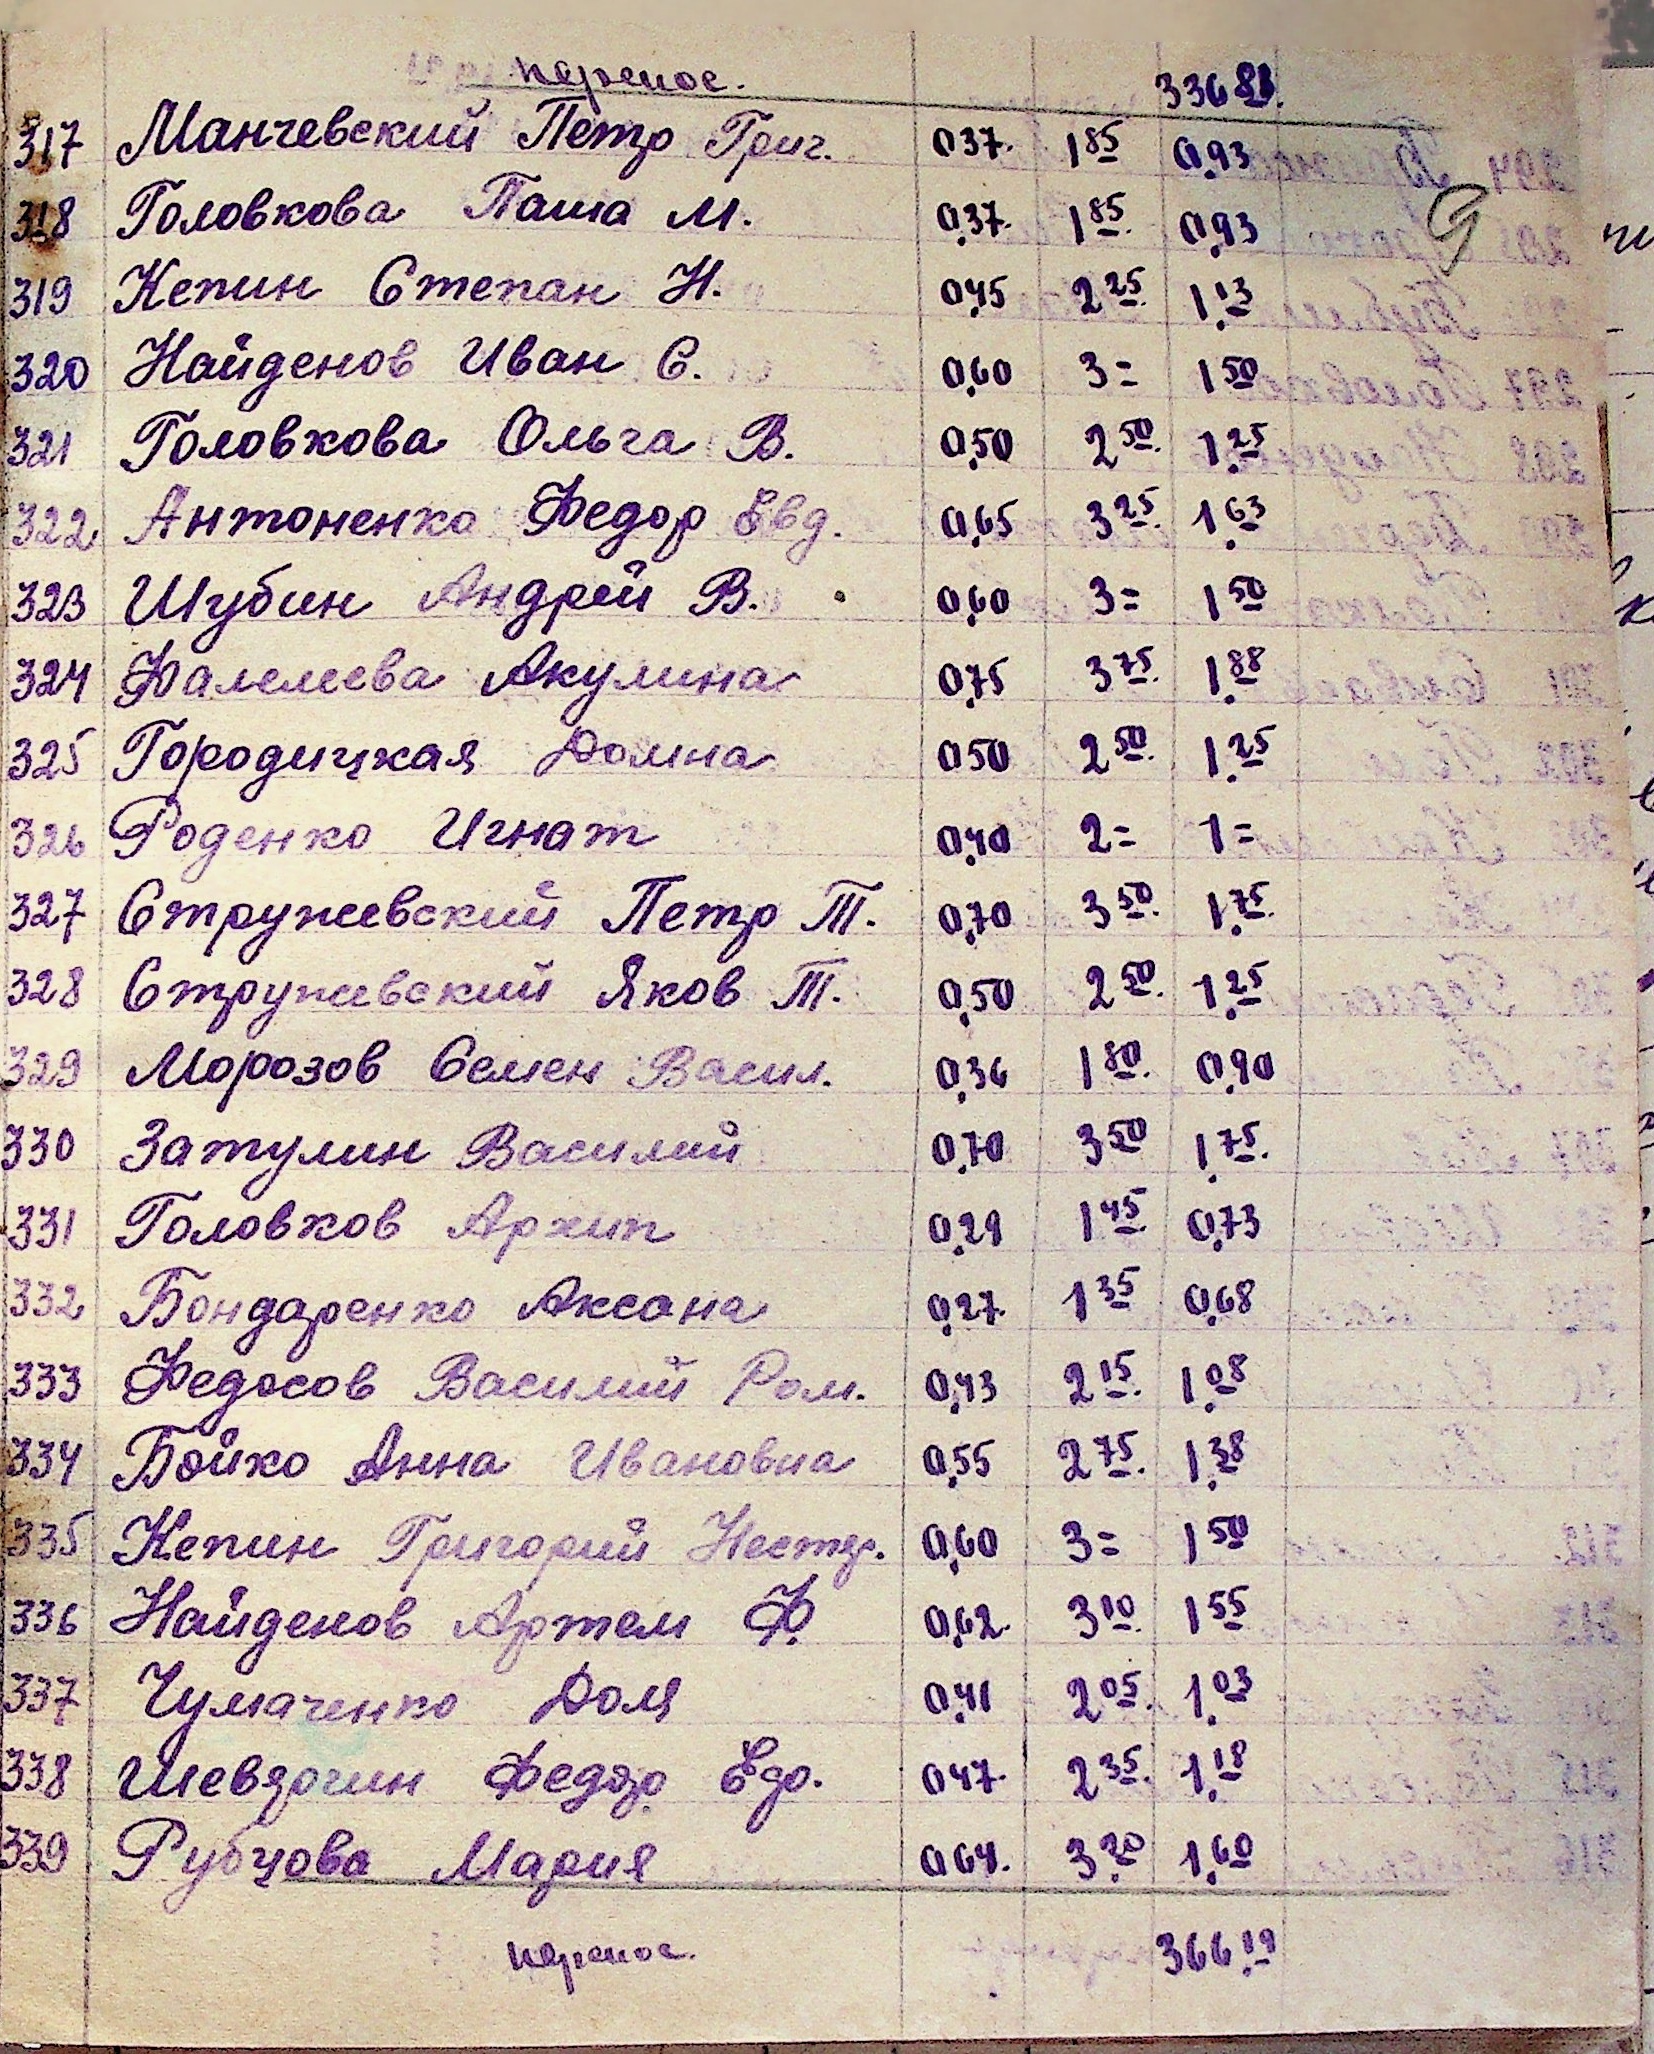 перенос. 336 81.
317 Манчевский Петр Григ. 0,37. 1 85 0,93
318 Головкова Паша М. 0,37. 1 85. 0,93
319 Кепин Степан Н. 0,45 2 25. 1.13
320 Найденов Иван С. 0,60 3= 1 50
321 Головкова Ольга В. 0,50 2 50. 1.25
322 Антоненко Федор Евд. 0,65 3 25. 1.63
323 Шубин Андрей В. 0,60 3= 1 50
324 Фалелеева Акулина 0,75 3 75. 1.88
325 Городицкая Домна 0,50 2 50. 1.25
326 Роденко Игнат 0,40 2= 1=
327 Стружевский Петр Т. 0,70 3 50. 1.75.
328 Стружевский Яков Т. 0,50 2 50. 1.25
329 Морозов Семен Васил. 0,36 1 80. 0,90
330 Затулин Василий 0,70 3 50 1.75.
331 Головков Архип 0,29 1 45. 0,73
332 Бондаренко Аксана 0,27. 1 35 0,68
333 Федосов Василий Ром. 0,43 2 15. 1.08
334 Бойко Анна Ивановна 0,55 2 75. 1.38
335 Кепин Григорий Нестер. 0,60 3= 1 50
336 Найденов Артем Ф. 0,62. 3 10. 1 55
337 Чумаченко Доля 0,41 2 05. 1.03
338 Шеврочин Федор Едо. 0,47. 2 35. 1.18
339 Рубцова Мария 0,64. 3.20 1.60
перенос. 366.19